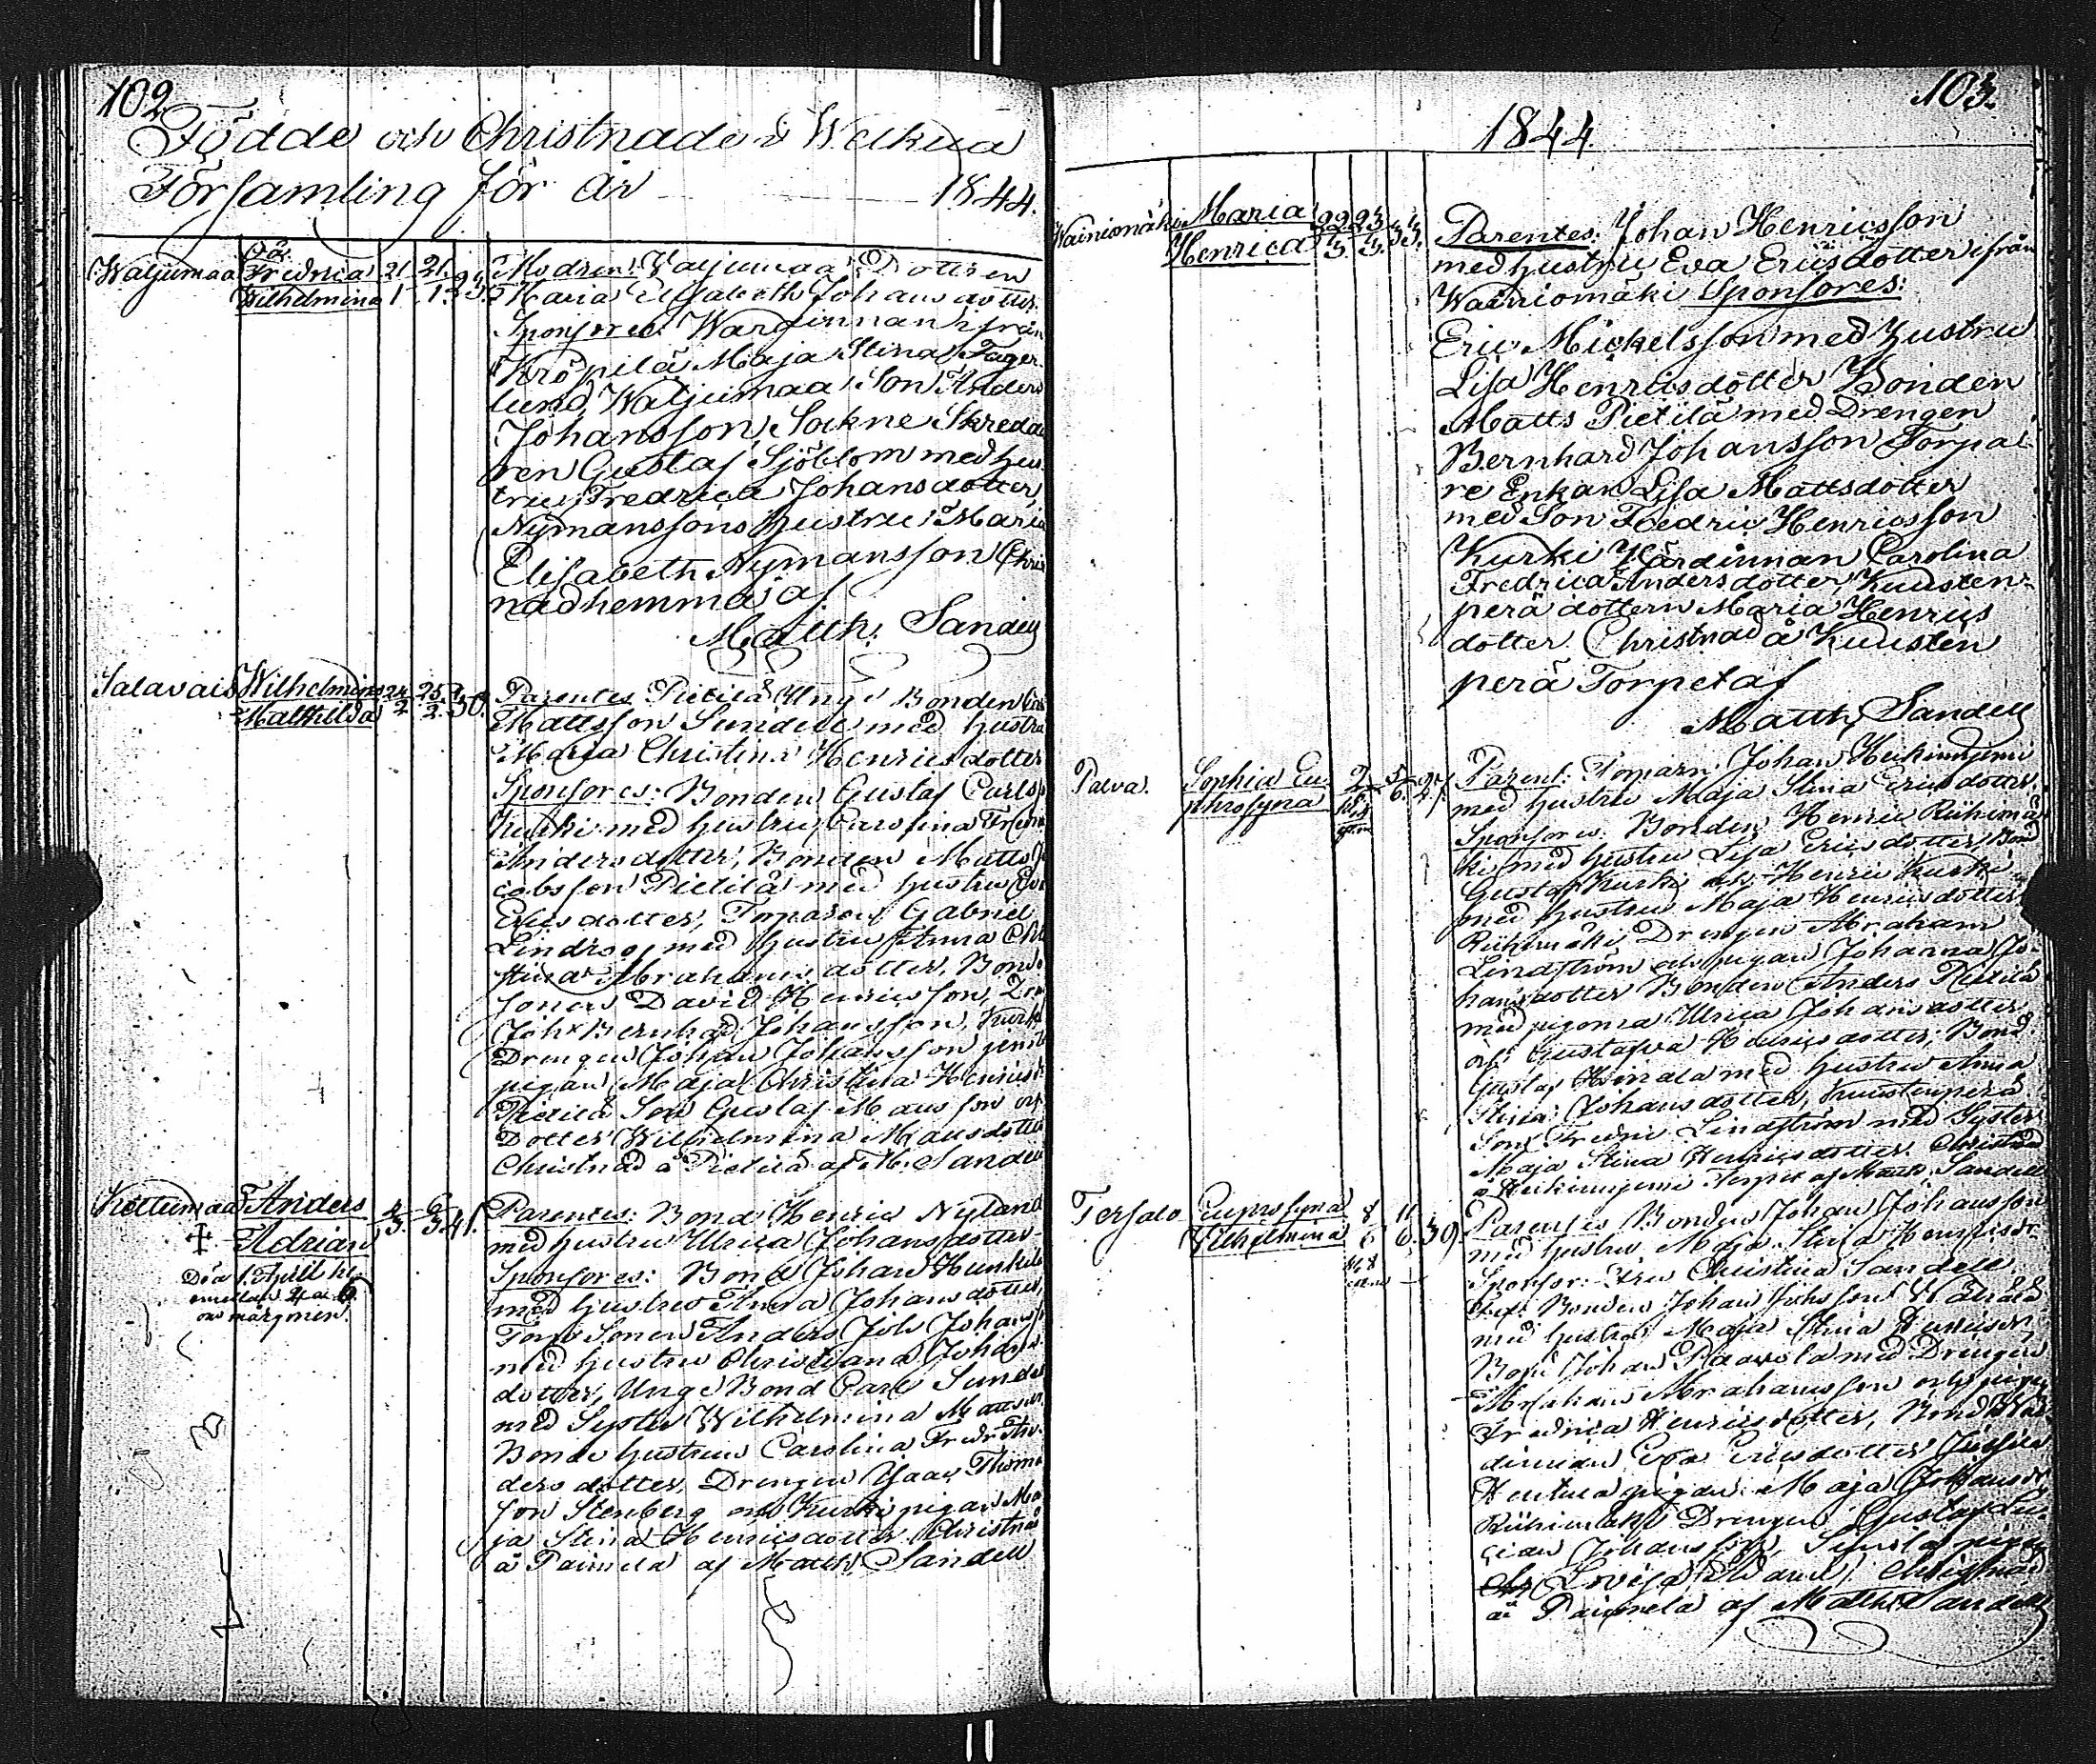 102
Födde och Christnade i Welkua
Församling för år 1844.
Waljumaa
O.ä.
Fredrica
Wilhelmina
21 21.
1 1.
Modren: Waljumaa Dottren
Maria Elisabeth Johansdotter
Sponsores: Wärdinnan ifrån
Kröpilä Maja Stina Fager
lund, Waljumaa Son Anders
Johansson, Sockne Skreda
ren Gustaf Sjöblom med hus
tru Fredrica Johansdotter,
Nymanssons hustru Maria
Elisabeth Nymansson Chris
nad hemma af
Matth. Sandell
Salavais
Wilhelmina
Mathilda
24 25.
2 2. 30.
Parentes Pietilä Unge Bonden
Mattsson Sundell med hustru
Maria Christina Henricsdotter
Sponsores: Bonden Gustaf Carls
Kurki med hustru Carolina Fredri
Andersdotter, Bonden Matts Ja
cobsson Pietilä med hustru Eva
Ericsdotter, Torparen Gabriel
Lindroos med hustru Anna Chri
stina Abrahamsdotter, Bond
sonen David Henricsson,
Joh. Bernhad Johansson, Kurki
Drengen Johan Johansson jemte
pigan Maja Christina Henricsd
Pietilä Son Gustaf Mansson och
Dotter Wilhelmina Mansdotter
Christnad å Pietilä af M: Sandell
Kettumaa
Anders
Adrian
Död 1 April kl.
emellan 4 a 6
om morgonen.
5 6
3. 3. 41.
Parentes: Bond: Henric Nyland
med hustru Ulrica Johansdotter
Sponsores: Bond Johan Hunkila
med hustru Anna Johansdotter,
Torp Sonen Anders Joh Johanss
med hustru Christiana Johans
dotter, Unge Bond Carl Sundel
med Syster Wilhelmina Mattsd
Bonde hustrun Carolina Fredr An
dersdotter, Drengen Isaac Thoma
son Stenberg och Kurki pigan Ma
ja Stina Henricsdotter Christnad
å Paimela af Matth: Sandell
103.
1844.
Wainiomäki
Maria
Henrica
22 23
3. 3. 33.
Parentes: Johan Henricsson
med hustru Eva Ericsdotter ifrån
Wainiomäki Sponsores:
Eric Mickelsson med Hustru
Lisa Henricsdotter Bonden
Matts Pietilä med Drengen
Bernhard Johansson Torpa
re Enkan Lisa Mattsdotter
med Son Fredric Henricsson
Kurki Wärdinnan Carolina
Fredrica Andersdotter, Kuusten
perä dottern Maria Henrics
dotter. Christnad å Kuusten
perä Torpet af
Matth. Sandell
Palva.
Sophia Eu
phrosyna
2 5
6 6. 27.
Parent: Torparn Johan Heikinnjemi
med hustru Maja Stina Ericsdotter.
Sponsores: Bonden Henric Riihimä
ki med hustru Lisa Ericsdotter, Bond
Gustaf Kurki och Henric Kurki
med hustru Maja Henricsdotter
Riihimäki Drengen Abraham
Lindström och pigan Johanna Jo
hansdotter Bonden Anders Pietilä
med pigorna Ulrica Johansdotter
och Gustafva Henricsdotter, Bond
Gustaf Heinala med hustru Anna
Stina Johansdotter, Kuustenperä
Son Fredric Lindström med Syster
Maja Stina Henricsdotter Christnad
å Heikinnjemi Torpet af Matth. Sandell
Tersalo
Euprosyna
Wilhelmina
8 11
6 6. 39.
Parentes Bonden Johan Johansson
med hustru Maja Stina Henricsdr
Sponsor: Fru Christina Sandell
Bonden Johan Johsson
med hustru Maja Stina Henricsdr
Bond Johan Paavola med Drengen
Abraham Abrahamsson och pigan
Fredrica Henricsdotter, Bond Wär
dinnan Eva Ericsdotter
pigan Maja Johansdr
Riihimäki Drengen Gustaf Lu
cian Johansson, pigan
Lovisa Christnad
å Paimela af Matth Sandell